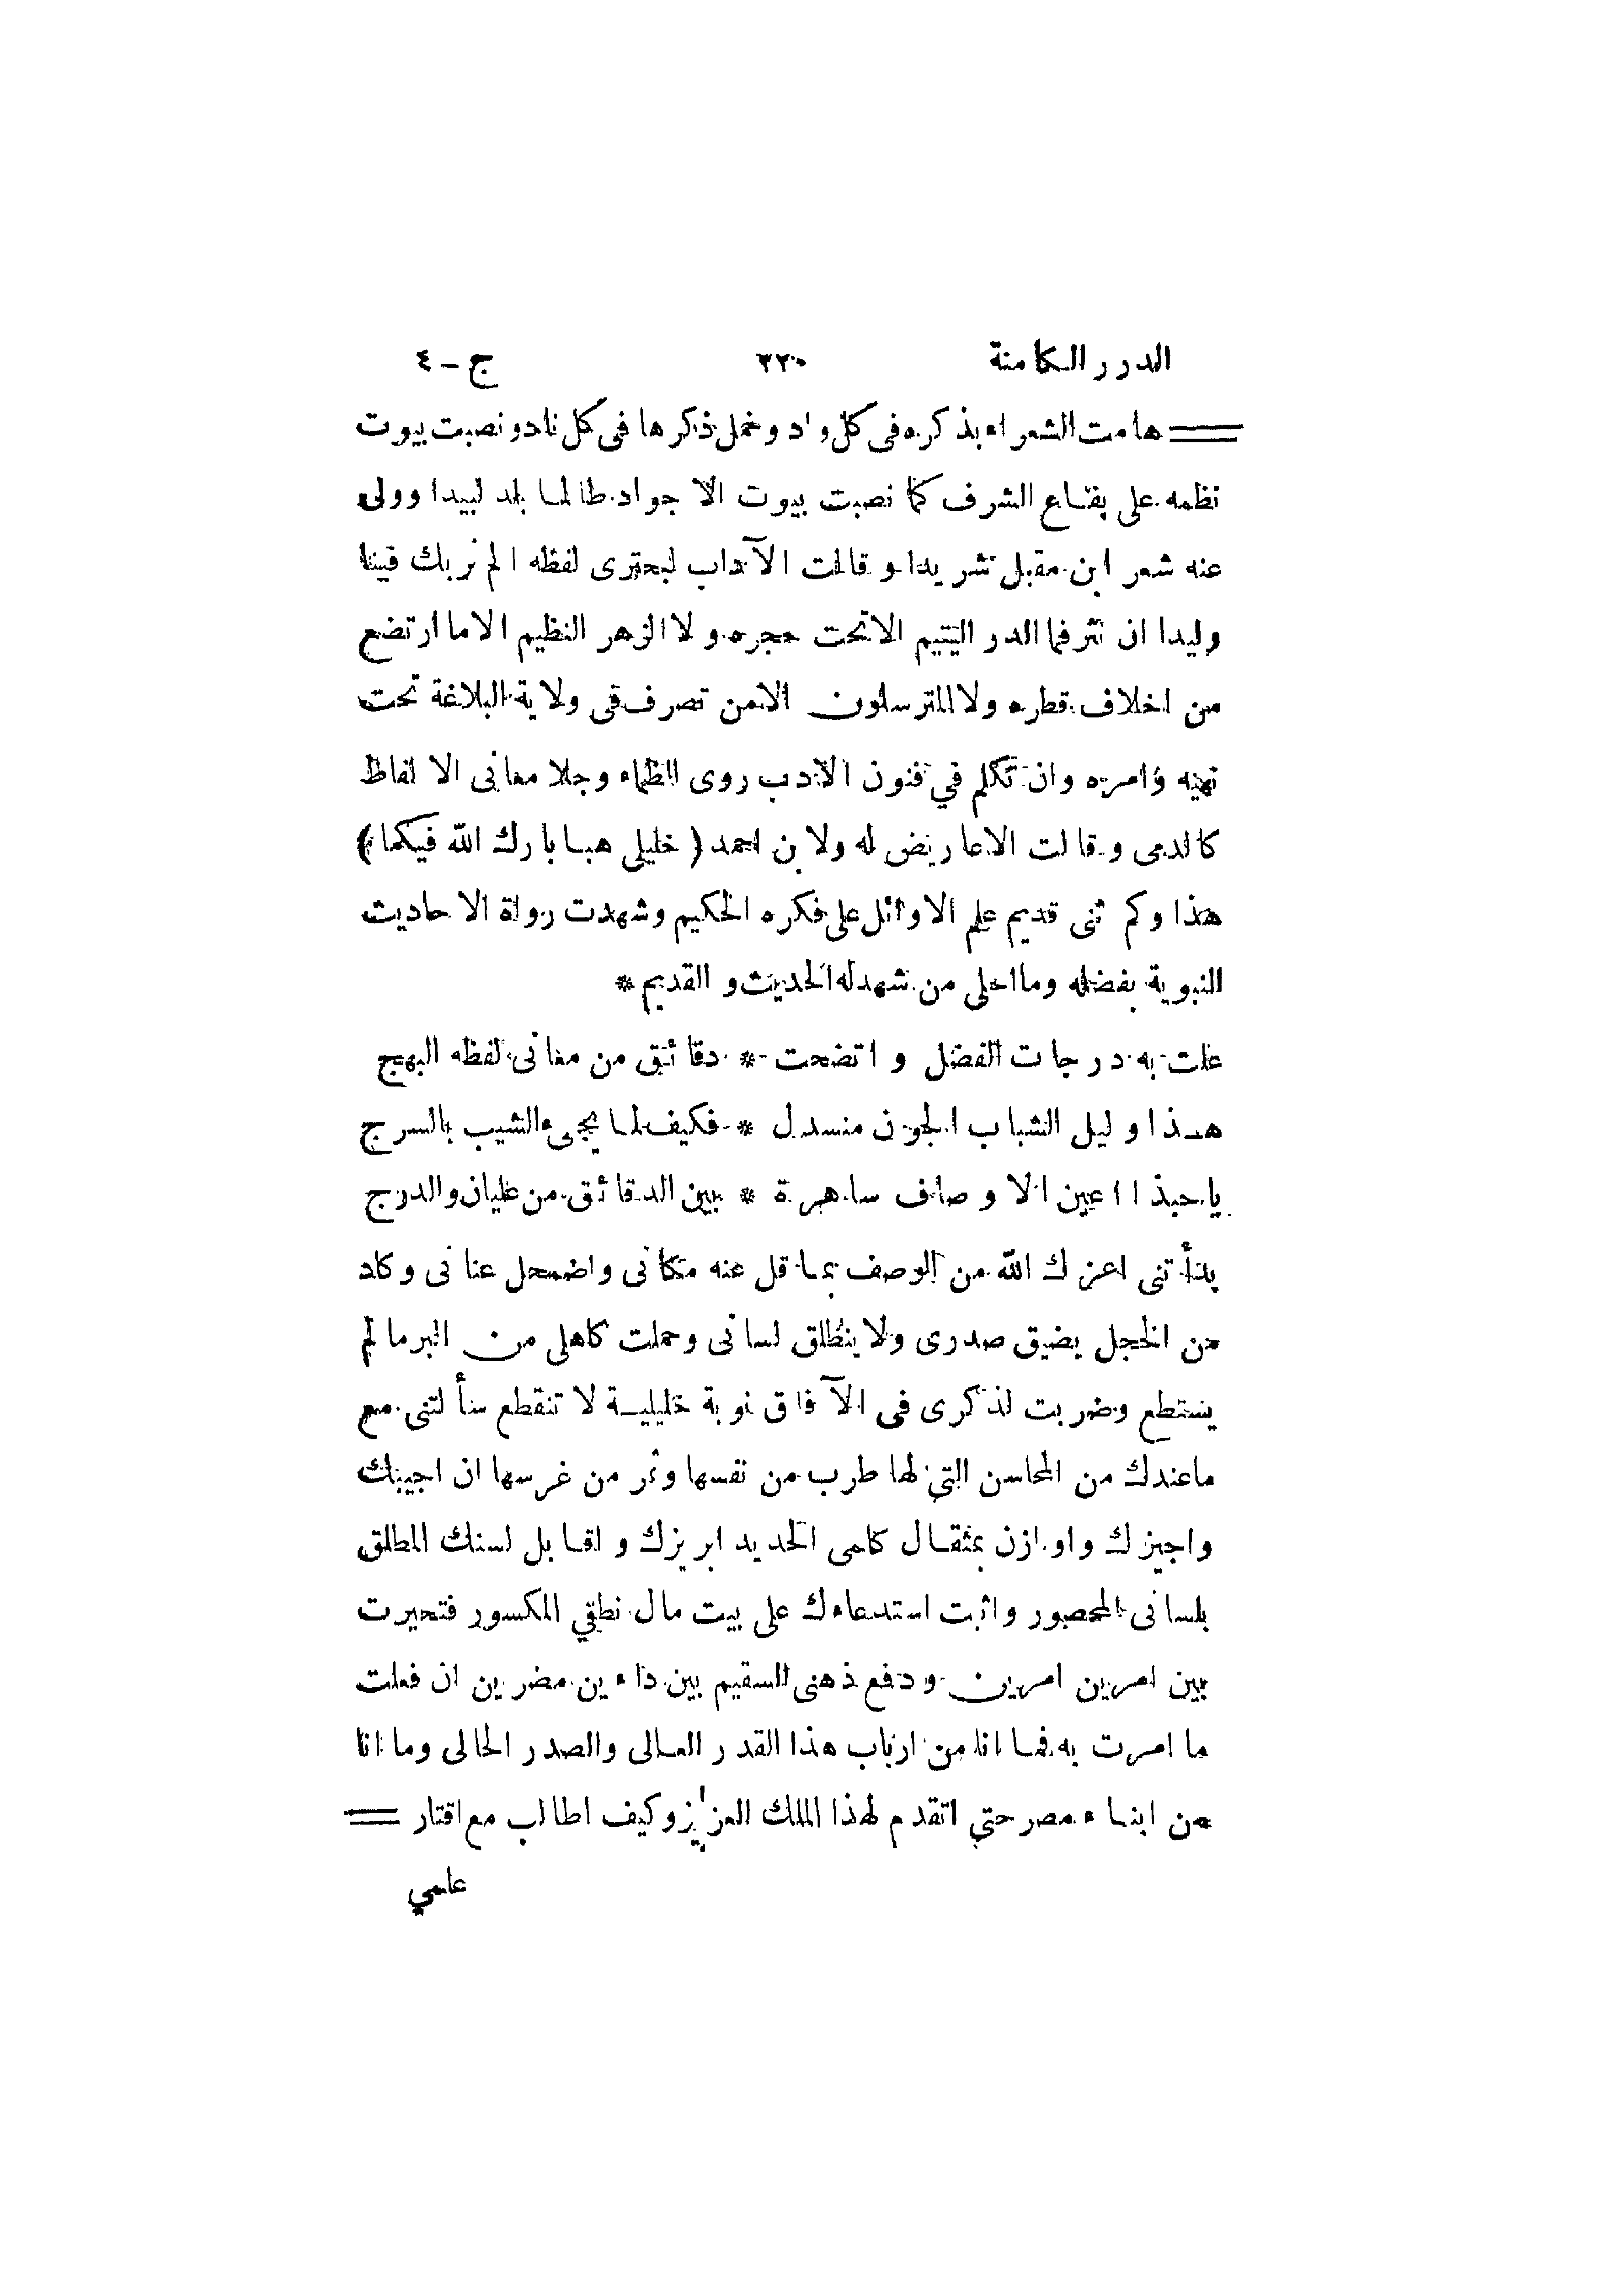 الدرر الكامنة ٣٢٠ ج - ٤
هامت الشعراء بذكره في كل واد وخمل ذكرها في كل ناد ونصبت بيوت
نظمه على بقاع الشرف كما نصبت بيوت الاجواد طالما بلد لبيدا وولى
عنه شعر ابن مقبل شريدا وقالت الآداب لبحترى لفظه الم نربك فينا
وليدا ان نثر فما الدر اليتيم الا تحت حجره ولا الزهر النظيم الا ما ارتضع
من اخلاف قطره ولا المترسلون الا من تصرف فى ولاية البلاغة تحت
نهيه وامره وان تكلم في فنون الادب روى الظماء وجلا معانى الالفاظ
كالدمى وقالت الاعاريض له ولابن احمد (خليلى هبا بارك الله فيكما)
هذا وكم ثنى قديم علم الاوائل على فكره الحكيم وشهدت رواة الاحاديث
النبوية بفضله وما احلى من شهد له الحديث والقديم *
علت به درجات الفضل واتضحت * دقائق من معانى لفظه البهج
هذا وليل الشباب الجون منسدل * فكيف لما يجىء الشيب بالسرج
يا حبذا اعين الاوصاف ساهرة * بين الدقائق من عليان والدرج
بدأتنى اعزك الله من الوصف بما قل عنه مكانى واضمحل عنانى وكاد
من الخجل يضيق صدرى ولا ينطلق لسانى وحملت كاهلى من البر ما لم
يستطع وضربت لذكرى فى الآفاق نوبة خليلية لا تنقطع سألتنى مع
ما عندك من المحاسن التي لها طرب من نفسها وثمر من غرسها ان اجيبك
واجيزك واوازن بمثقال كلمى الحديد ابريزك واقابل لسنك المطلق
بلسانى المحصور واثبت استدعاءك على بيت مال نطقي المكسور فتحيرت
بين امرين امرين ودفع ذهنى السقيم بين داءين مضرين ان فعلت
ما امرت به فما انا من ارباب هذا القدر العالى والصدر الحالى وما انا
من ابناء مصر حتي اتقدم لهذا الملك العزيز وكيف اطالب مع اقتار
علمي